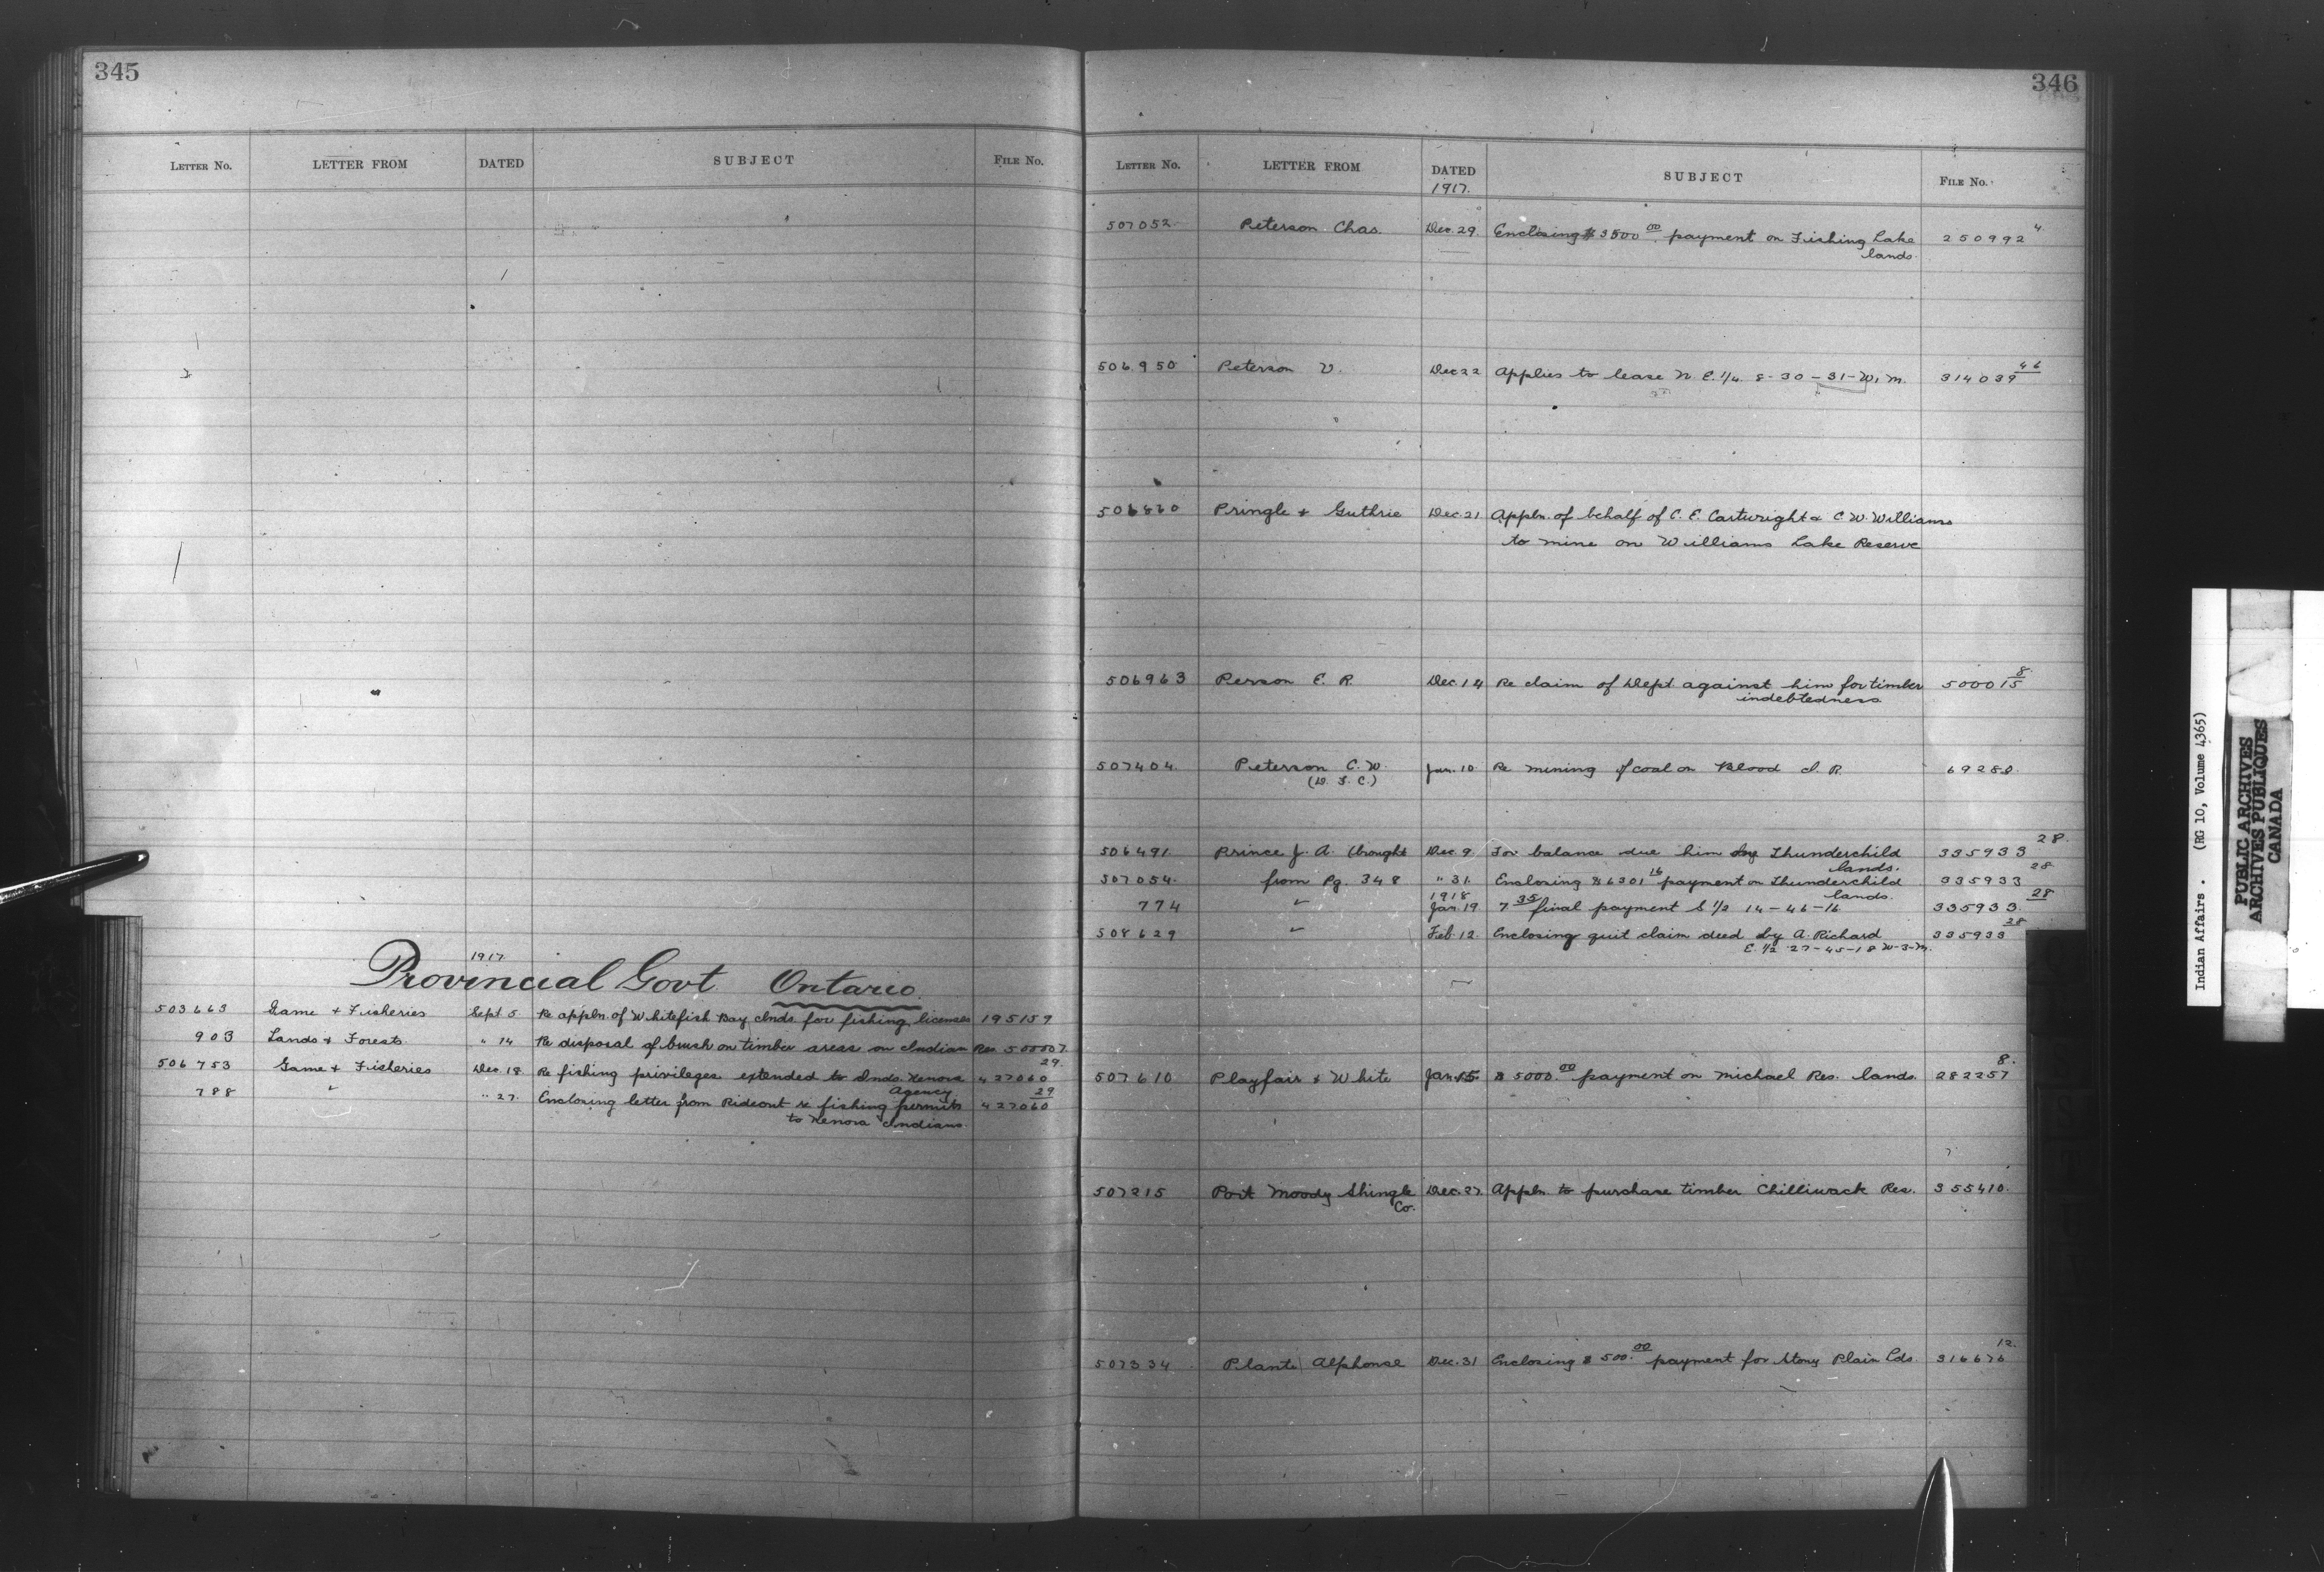 345
LETTER No. LETTER FROM DATED SUBJECT FILE No.
1917
Provincial Govt. Ontario
503663 Game + Fisheries Sept 5 Re appln. of Whitefish Bay Inds. for fishing licenses 195159
903 Lands + Forests " 14 Re disposal of brush on timber areas on Indian Res. 500007
29
506753 Game + Fisheries Dec. 18 Re fishing privileges extended to Inds. Kenora 427060
Agency 29
788 " " 27. Enclosing letter from Rideout re fishing permits 427060
to Kenora Indians.
346
LETTER No. LETTER FROM DATED SUBJECT FILE No.
1917.
507052 Peterson Chas. Dec. 29. Enclosing $3500 00 payment on Fishing Lake 250992 4
lands.
506950 Peterson V. Dec 22 Applies to lease N. E. 1/4 8-30-31-W.1M. 314039 46
506860 Pringle + Guthrie Dec. 21 Appln. of behalf of C. E. Cartwright + C. W. Williams
to mine on Williams Lake Reserve
506963 Person E. R. Dec. 14 Re claim of Dept. against him for timber 500015 8.
indebtedness
507404. Peterson C. W. Jan. 10 Re mining of coal on Blood I. R.
(W. F. C.)
28.
506491. Prince J. A. (brought Dec. 9 For balance due him by Thunderchild 335933
lands. 28
507054. from Pg. 348 " 31. Enclosing $6301 16 payment on Thunderchild 335933
1918 lands. 28
774 " Jan. 19 7 35 final payment S 1/2 14-46-16 335933.
28
508629 " Feb. 12. Enclosing quit claim deed by A. Richard 335933
E. 1/2 27-45-18 W-3-M.
8.
507610 Playfair & White Jan. 15. $5000. 00 payment on Michael Res. lands. 282257
507215 Port Moody Shingle Dec. 27 Appln to purchase timber Chilliwack Res. 355410.
Co.
12.
507334 Plante Alphonse Dec. 31 Enclosing $500. 00 payment for Stony Plain Lds. 316676
Indian Affairs. (RG 10, Volume 4365)
PUBLIC ARCHIVES
ARCHIVES PUBLIQUES
CANADA